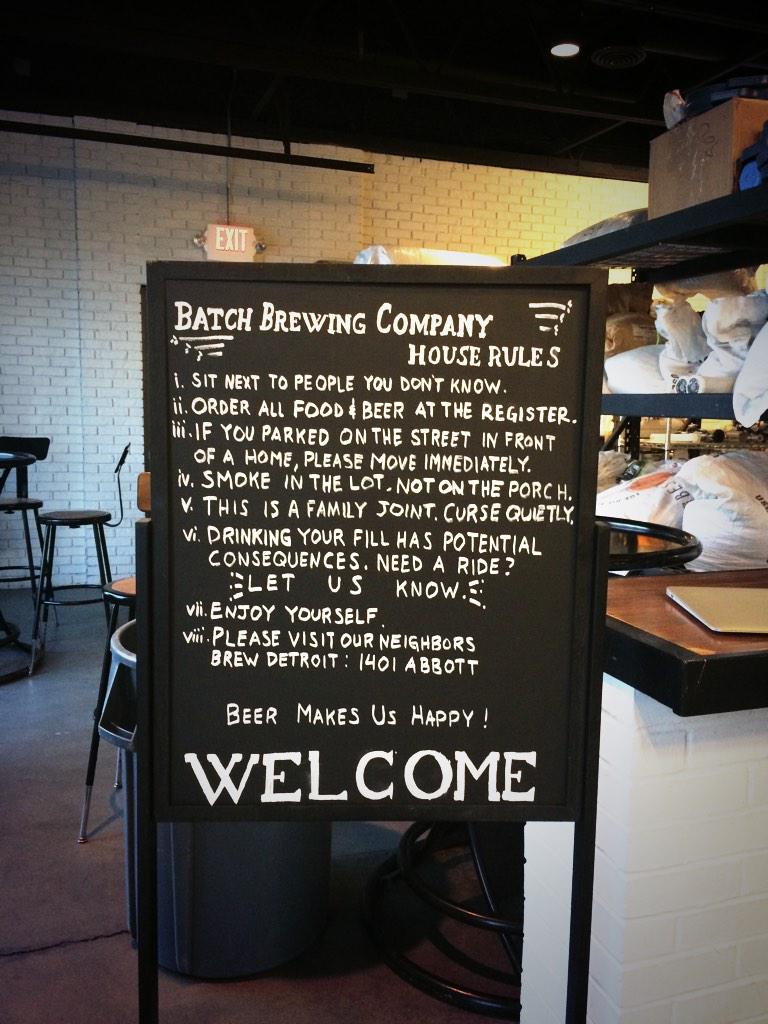 EXIT
BATCH BREWING COMPANY
HOUSE RULES
i. SIT NEXT TO PEOPLE YOU DON'T KNOW.
ii. ORDER ALL FOOD & BEER AT THE REGISTER.
iii. IF YOU PARKED ON THE STREET IN FRONT
OF A HOME, PLEASE MOVE IMMEDIATELY.
iv. SMOKE IN THE LOT. NOT ON THE PORCH.
v. THIS IS A FAMILY JOINT. CURSE QUIETLY.
vi. DRINKING YOUR FILL HAS POTENTIAL
CONSEQUENCES. NEED A RIDE?
LET US KNOW.
vii. ENJOY YOURSELF.
viii. PLEASE VISIT OUR NEIGHBORS
BREW DETROIT: 1401 ABBOTT
BEER MAKES US HAPPY!
WELCOME